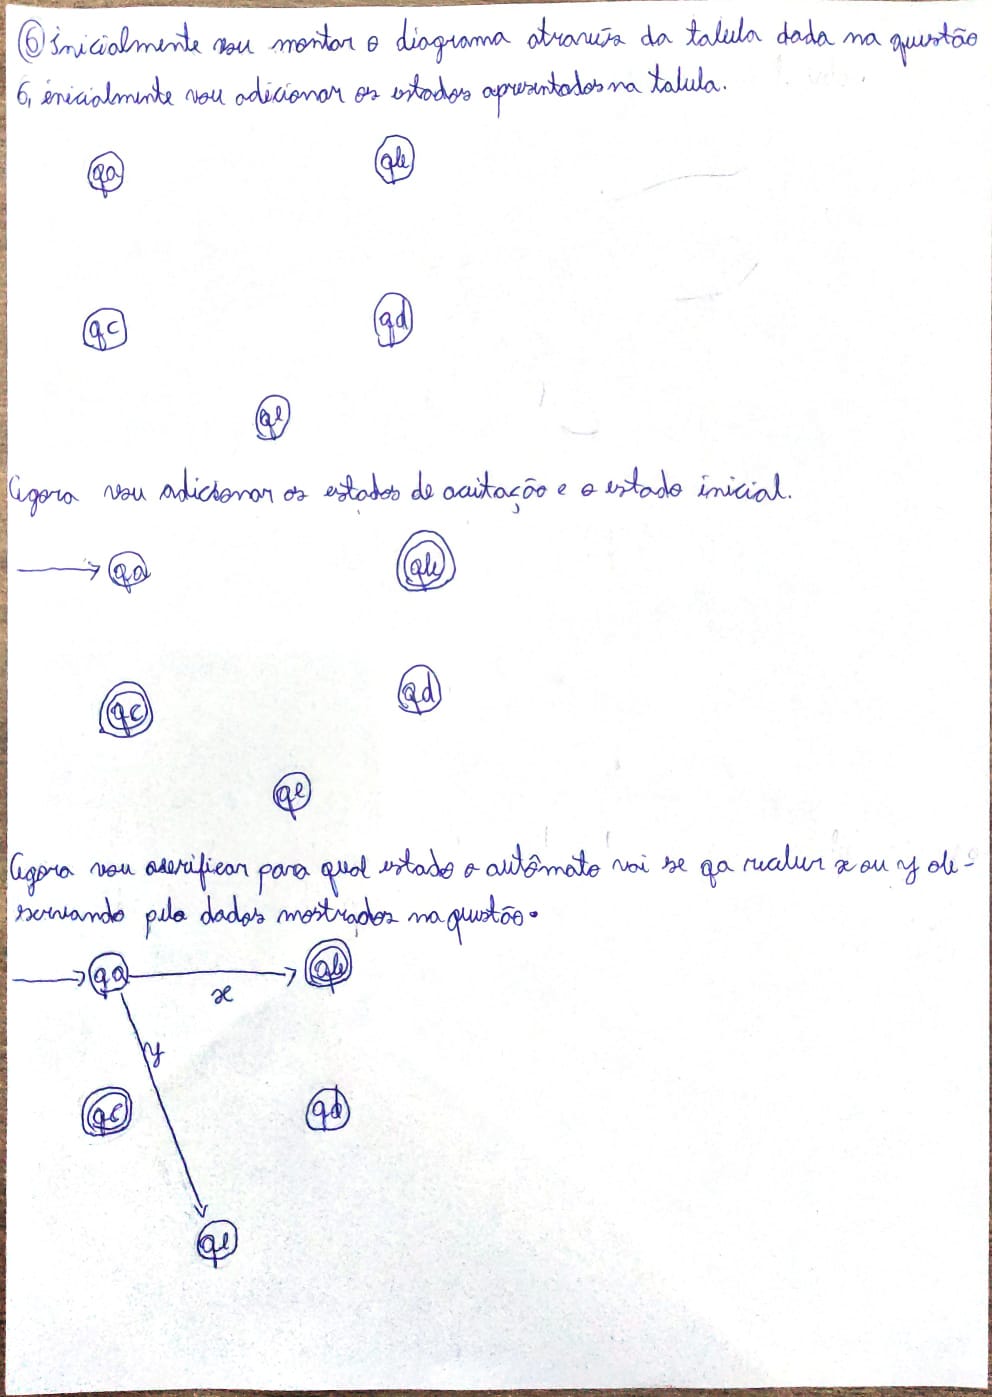 ⑥ Inicialmente vou montar o diagrama através da tabela dada na questão
6, inicialmente vou adicionar os estados apresentados na tabela.
qa qb
qc qd
qe
Agora vou adicionar os estados de aceitação e o estado inicial.
qa qb
qc qd
qe
Agora vou verificar para qual estado o autômato vai se qa receber x ou y ob-
servando pelo dados mostrados na questão.
qa x qb
y
qc qd
qe